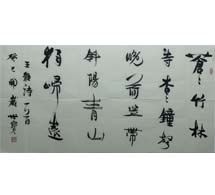 蒼〻竹林
寺杳〻鐘聲
晚荷笠帶
斜陽青山
獨歸遠
詩一首